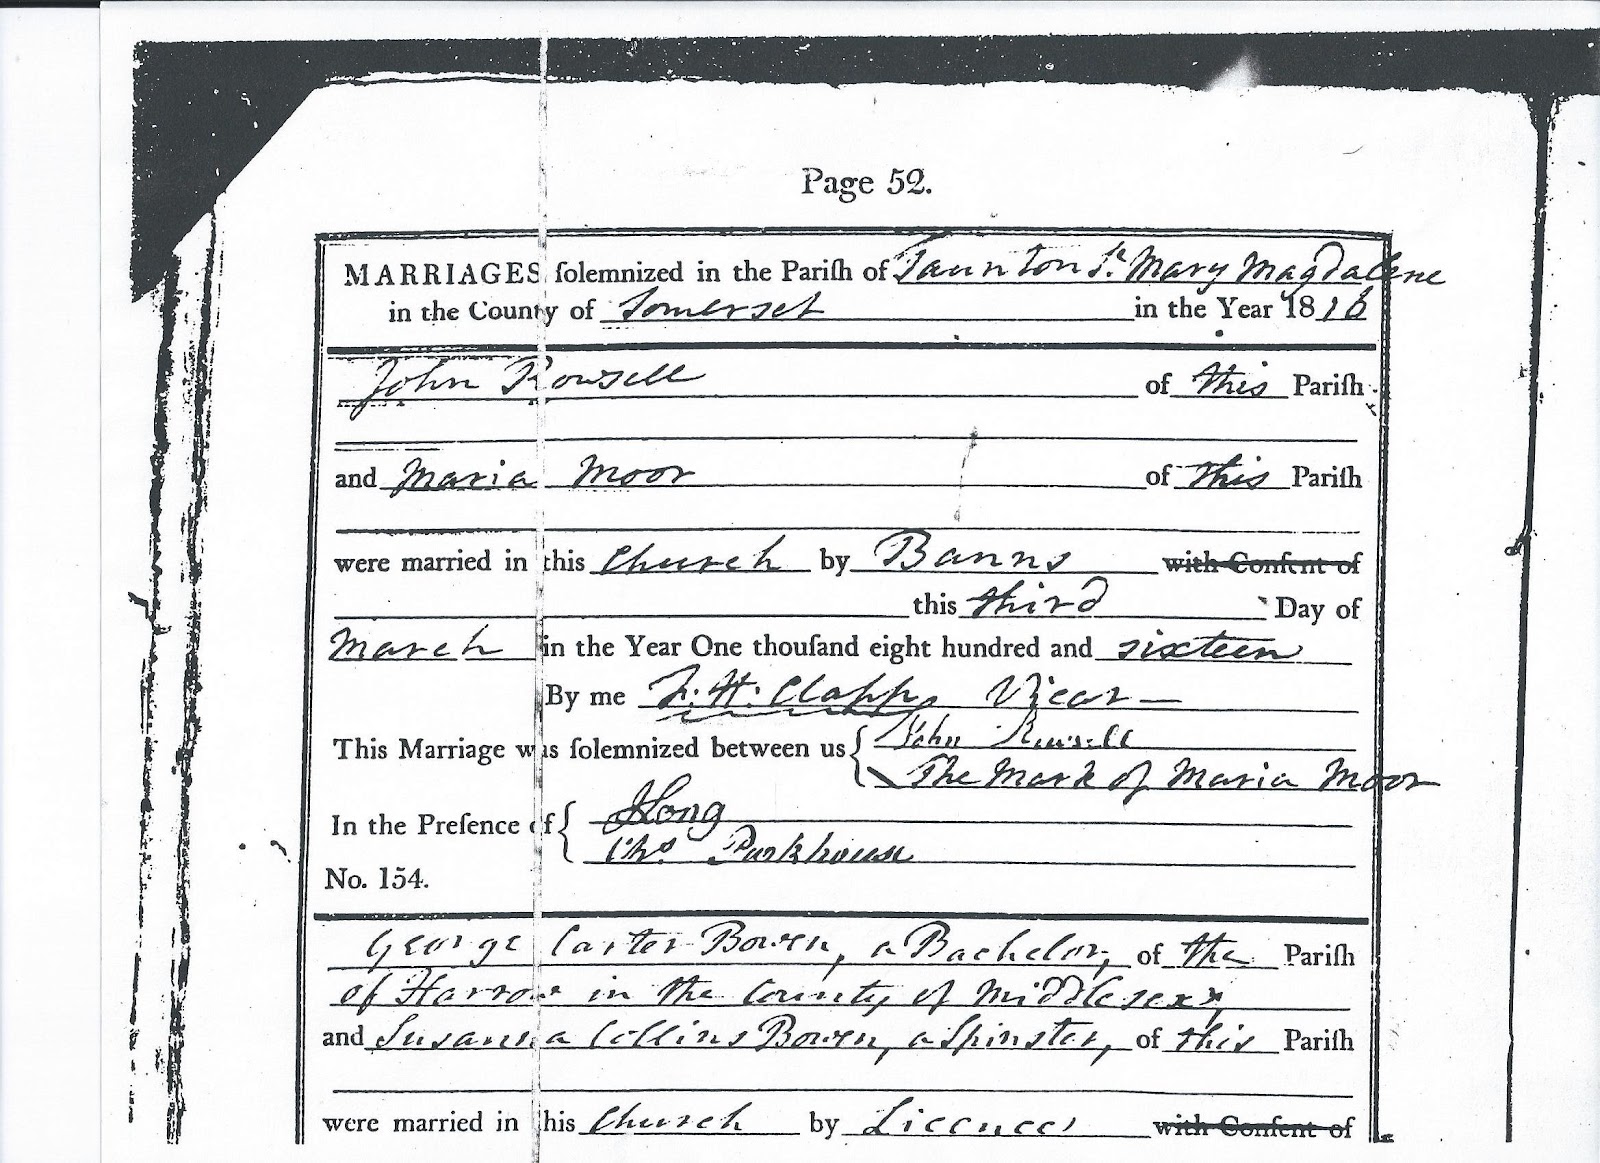 Page 52.
MARRIAGES ſolemnized in the Pariſh of Taunton St. Mary Magdalene
in the County of Somerset in the Year 1816
John Rowsell of this Pariſh
and Maria Moor of this Pariſh
were married in this Church by Banns with Conſent of
this third Day of
March in the Year One thouſand eight hundred and sixteen
By me H. Clapp Vicar
This Marriage was ſolemnized between us John Rowsell
The Mark of Maria Moor
In the Preſence of J Long
Parkhouse
No. 154.
George Carter Bowen, a Bachelor, of the Pariſh
of Harrow in the County of Middlesex,
and Susanna Collins Bowen, a Spinster, of this Pariſh
were married in this Church by Licence with Conſent of